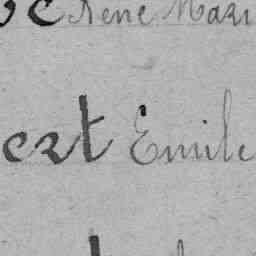 René Mari
ert Emile